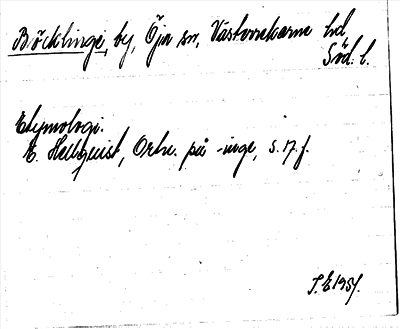 Böcklinge, by, Öja sn, Västvrekarne hd
Söd. l.
Etymologi.
E. Hellquist, Ortn. på -inge, s. 17 f.
S. E 1951.